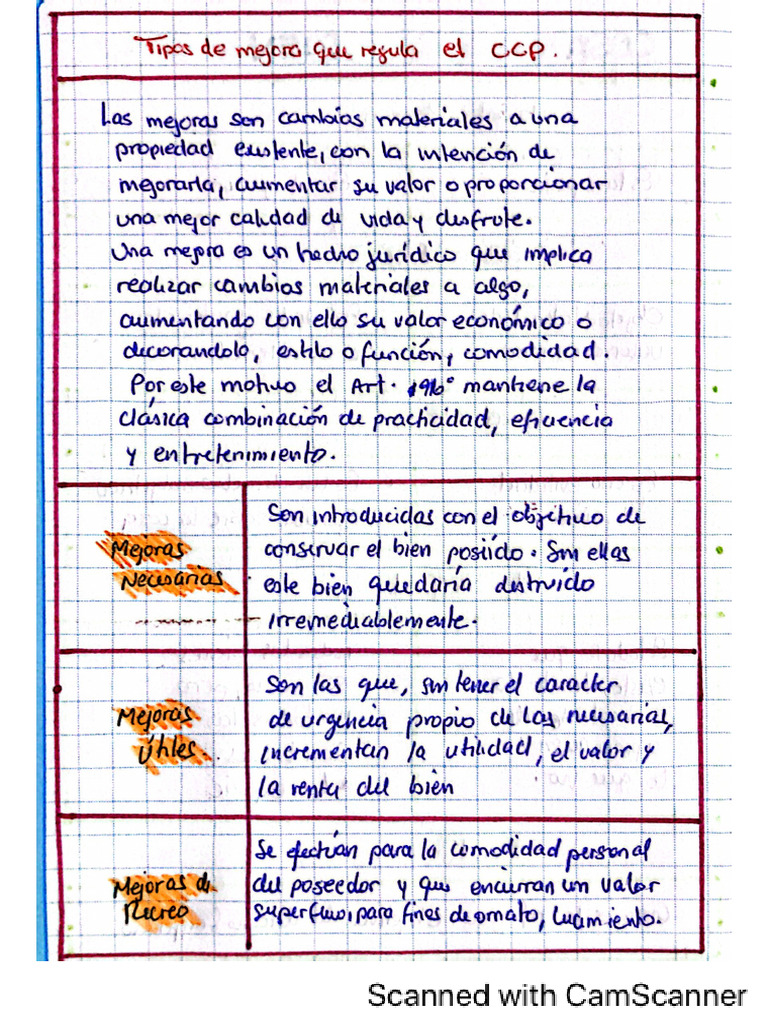 Tipos de mejora que regula el CCP.
Las mejoras son cambios materiales a una
propiedad existente, con la intención de
mejorarla, aumentar su valor o proporcionar
una mejor calidad de vida y disfrute.
Una mejora es un hecho jurídico que implica
realizar cambios materiales a algo,
aumentando con ello su valor económico o
decorandolo, estilo o función, comodidad.
Por este motivo el Art. 916° mantiene la
clásica combinación de practicidad, eficiencia
y entretenimiento.
Mejoras
Necesarias
Son introducidas con el objetivo de
conservar el bien poseído. Sin ellas
este bien quedaría destruido
irremediablemente.
Mejoras
Útiles.
Son las que, sin tener el caracter
de urgencia propio de las necesarias,
incrementan la utilidad, el valor y
la renta del bien
Mejoras de
Recreo
Se efectúan para la comodidad personal
del poseedor y que encierran un valor
superfluo para fines de ornato, lucimiento.
Scanned with CamScanner